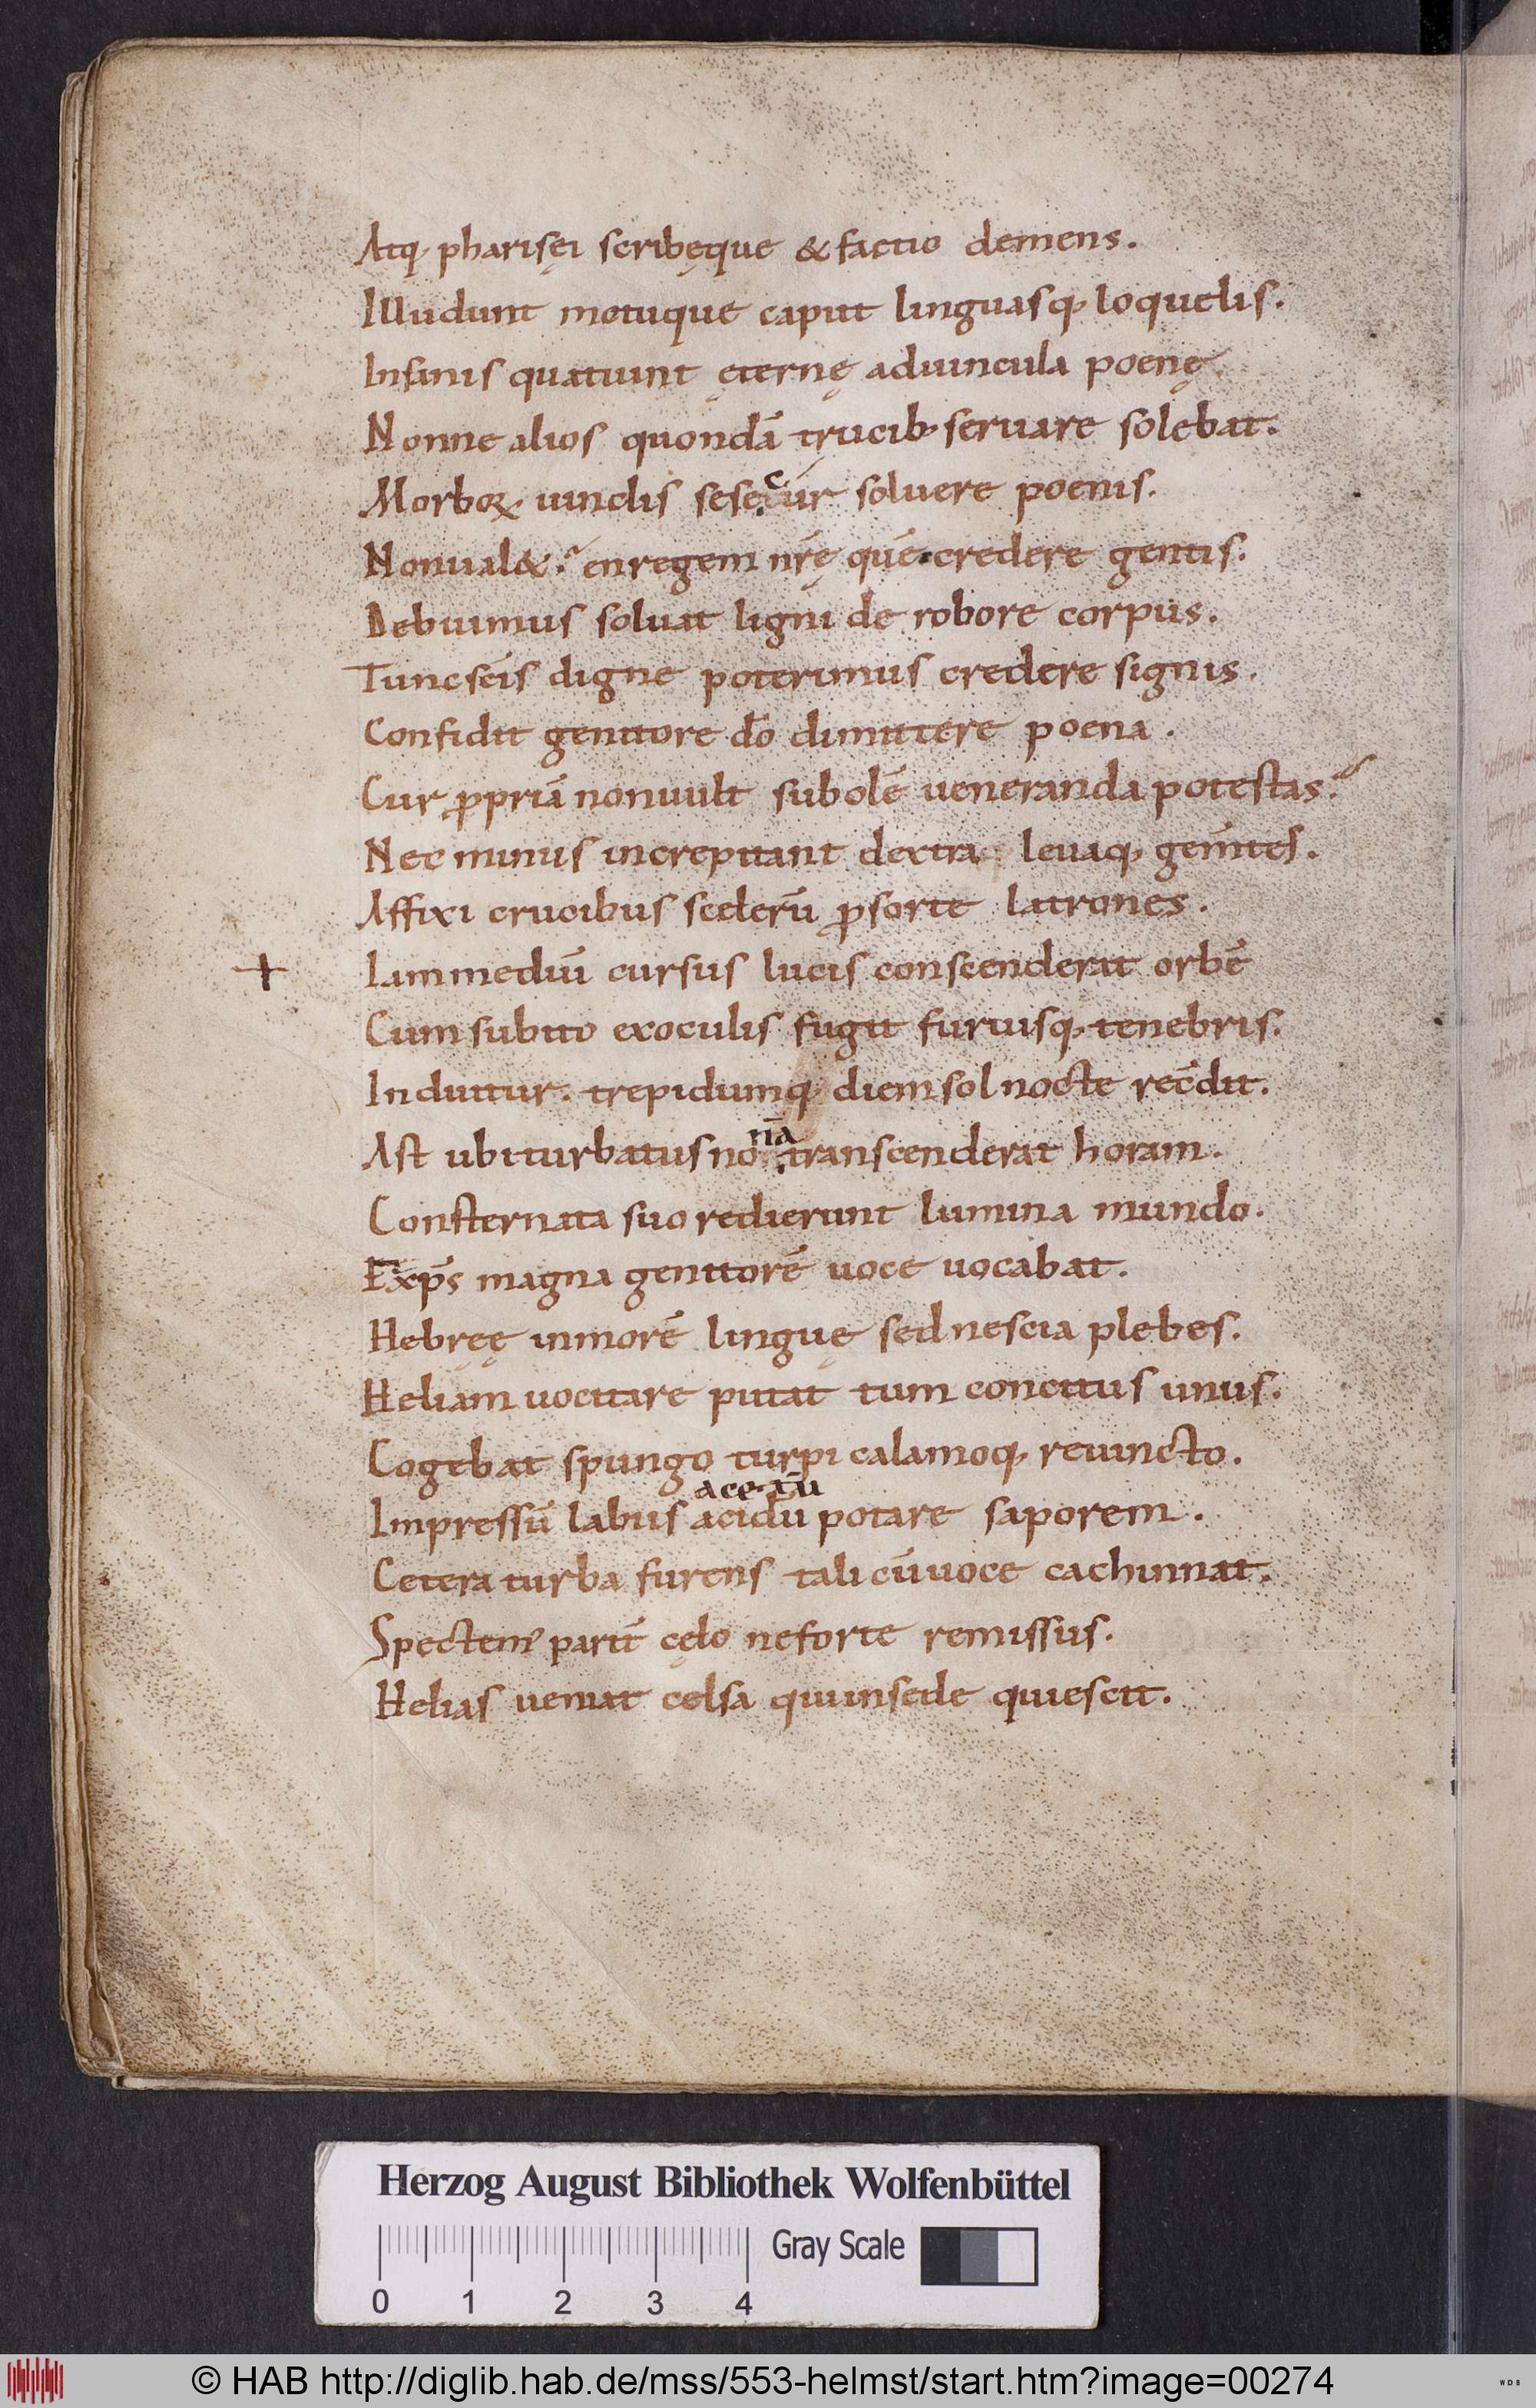 Atq· pharisęi scribęque & factio demens.
Illudunt motuque caput linguasq· loquelis.
Insanis quatiunt ęternę aduincula poenę
Nonne alios quondā trucib· seruare solebat.
c
Morboꝝ uinclis sese cur soluere poenis.
Nonual&.? en regem nr̄ę que credere gentis.
Debuimus soluat ligni de robore corpus.
Tunc sc̄is digne poterimus credere signis.
Confidit genitore dō dimittere poena.
Cur ꝓpriā nonuult subolē ueneranda potestas.?
Nec minus increpitant dextra leuaq· gementes.
Affixi crucibus scelerū ꝓ sorte latrones.
+ Iam mediū cursus lucis conscenderat orbē
Cum subito exoculis fugit furuisq· tenebris.
Induitur. trepidumq· diem sol nocte recc̄dit.
nā
Ast ubi turbatus no transcenderat horam.
Consternata suo redierunt lumina mundo.
Exp̄s magna genitorē uoce uocabat.
Hebręę inmorē linguę sed nescia plebes.
Heliam uocitare putat tum concitus unus.
Cogebat spungo turpi calamoq· reuincto.
ace·tū
Impressū labiis acidū potare saporem.
Cetera turba furens tali cū uoce cachinnat.
Spectem' paritē cęlo neforte remissus.
Helias ueniat celsa qui in sede quiescit.
Herzog August Bibliothek Wolfenbüttel
Gray Scale
0 1 2 3 4
© HAB http://diglib.hab.de/mss/553-helmst/start.htm?image=00274
WDB